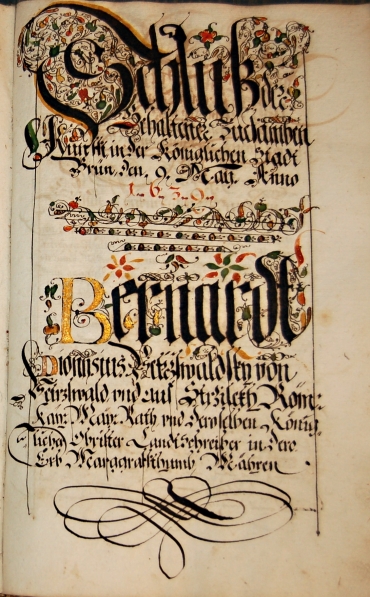 Schluß der
gehaltener Zusamben
Kunfft in der Königlichen Stadt
Brün, den, 9, May, Anno
1. 6. 3. 0.
Bernardt
Dionÿsius von
vnd auf Römi:
Kay: May: Rath vnd derselben König:
licher Obrister Landtschreiber in dero
Erb Marggraffthumb Mähren